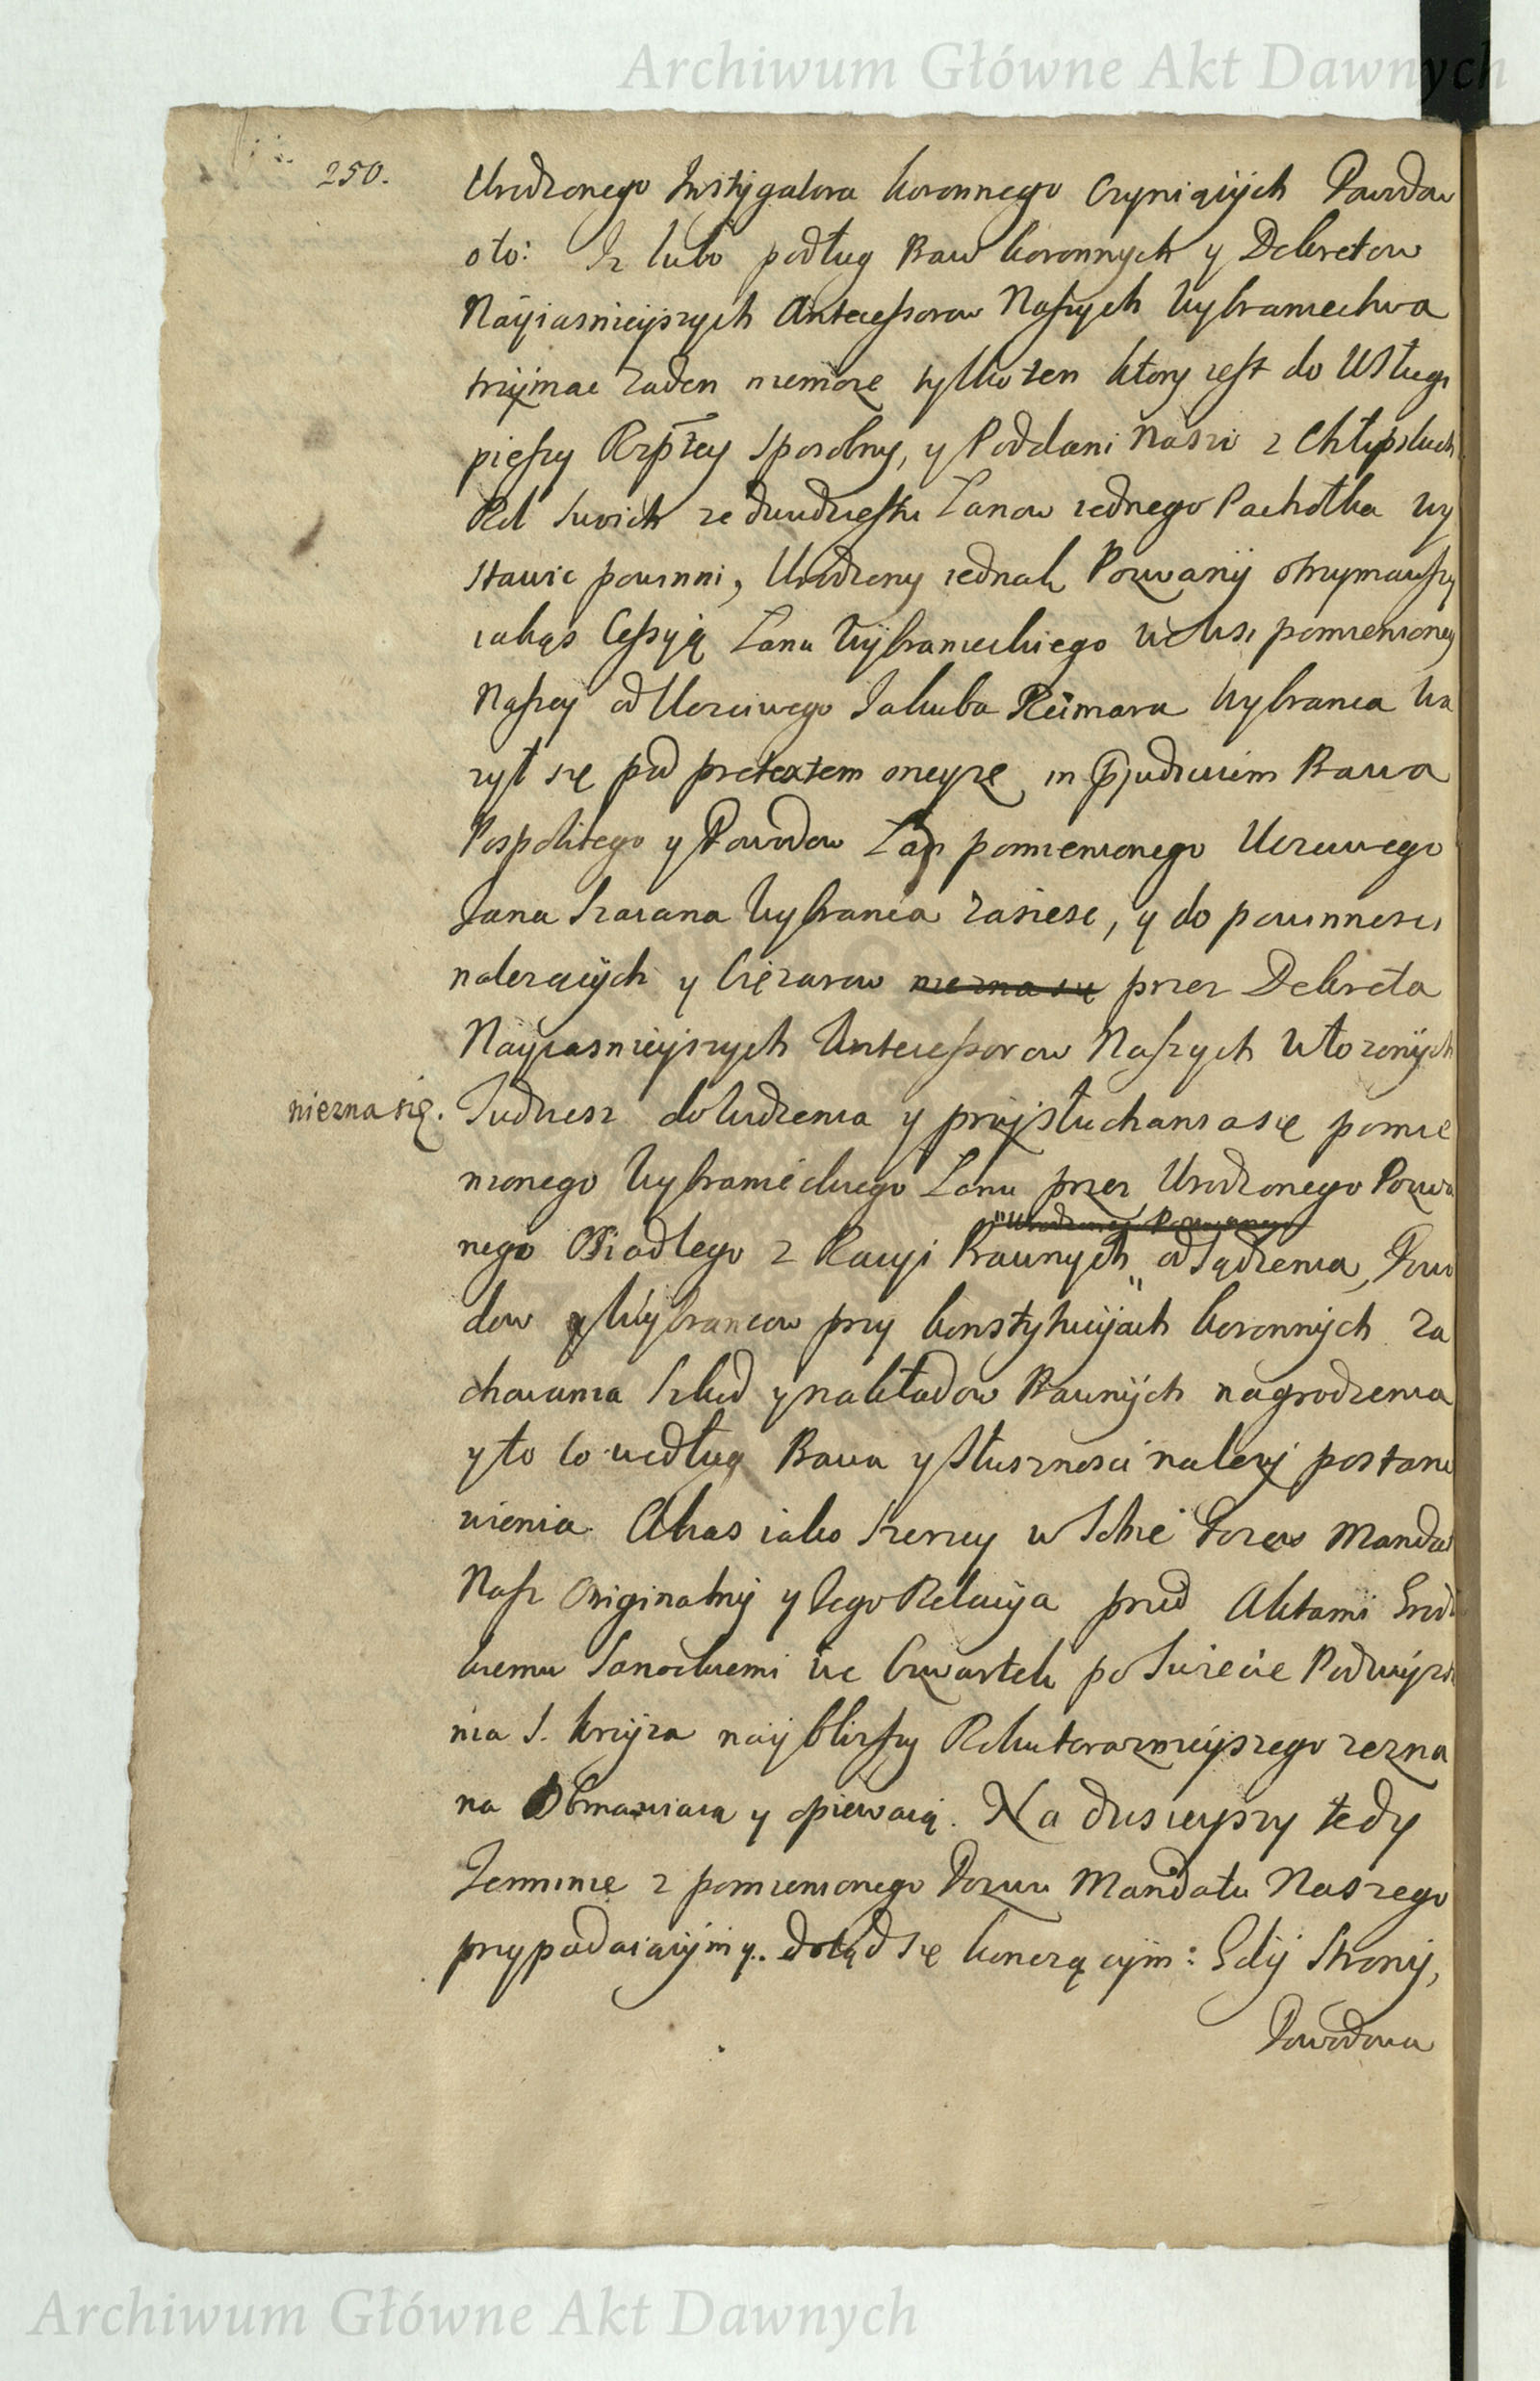 Archiwum Główne Akt Dawnych
250.
Urodzonego Instygatora koronnego czyniących Powodow
oto: Iz lubo podług Praw koronnych y Dekretow
Nayiasnieyszych Antecessorow Naszych Wybraniectwa
trzymac zaden niemoze tylko ten ktory iest do Usługi
pieszy Rzpltey sposobny, y Poddani Nasi z Chłopskich
Rol swoich ze dwudziestu Łanow iednego Pachołka wy
stawic powinni, Urodzony iednak Pozwany otrzymawszy
iakąs Cessyią Łanu Wybranieckiego we wsi pomienioney
Naszey od Uczciwego Jakuba Reimara Wybranca wa
zył się pod pretextem oneyze in prejudicium Prawa
Pospolitego y Powodow Łan pomienionego Uczciwego
Jana Wybranca zasiesc, y do powinnosci
nalezących y Cięzarow niezna się przez Dekreta
Nayiasnieyszych Antecessorow Naszych włozonych
niezna się. Tudziesz do Widzenia y przysłuchania się pomie
nionego Wybranieckiego Łanu przez Urodzonego Pozwa
"Urodzonego Pozwanego
nego Osiadłego z Racyi Prawnych" odsądzenia, Powo
dow y Wybrancow przy konstytucyiach koronnych za
chowania Szkod y nakładow Prawnych nagrodzenia
y to co według Prawa y słusznosci nalezy postano
wienia. Akas iako szerzey w Sobie Pozew Mandat
Nasz Originalny y Jego Relacyia przed Aktami Grodz
kiemi Sanockiemi we Czwartek po Swięcie Podwyzsze
nia S. krzyza nayblizszy Roku teraznieyszego zezna
na Obmawiaią y opiewaią. Na dzisieyszy tedy
Terminie z pomienionego Pozwu Mandatu Naszego
przypadaiącym y.. dotąd się konczącym: Gdy Strony,
Powodowa
Archiwum Główne Akt Dawnych